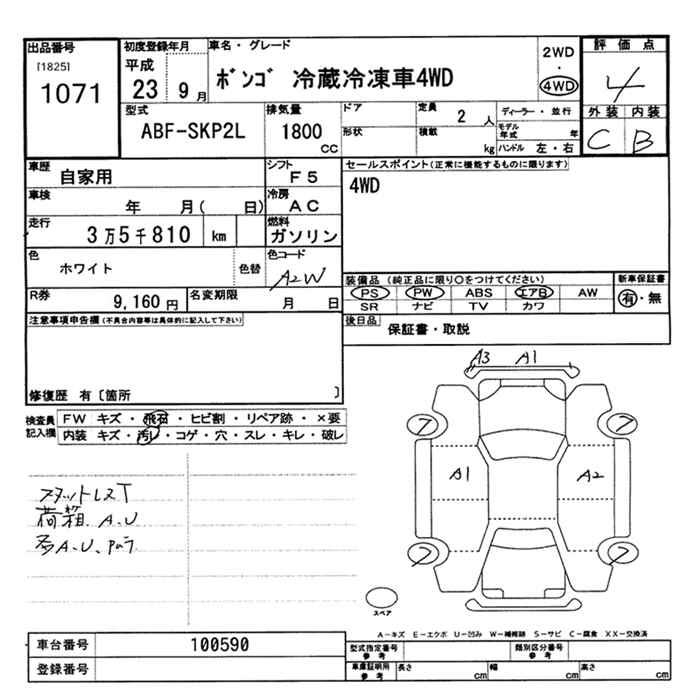 出品番号
[1825]
1071
初度登録年月
平成
23 9月
車名・グレード
ボンゴ 冷蔵冷凍車4WD
2WD
・
4WD
評価点
4
外装 内装
C B
型式
ABF-SKP2L
排気量
1800
CC
ドア
形状
定員
2人
積載
kg
ディーラー・並行
モデル年式 年
ハンドル 左・右
車歴
自家用
シフト
F5
車検
年 月( 日)
冷房
AC
走行
3万5千810 km
燃料
ガソリン
色
ホワイト
色替
色コード
A2W
R券
9,160円
名変期限
月 日
セールスポイント(正常に機能するものに限ります)
4WD
装備品(純正品に限り○をつけてください)
PS PW ABS エアB AW
SR ナビ TV カワ
新車保証書
有・無
後日品
保証書・取説
注意事項申告欄(不具合内容等は具体的に記入して下さい)
修復歴 有〔箇所 〕
検査員記入欄
FW キズ・飛石・ヒビ割・リペア跡・×要
内装 キズ・汚レ・コゲ・穴・スレ・キレ・破レ
スタットレスT
荷箱、A、U
多A、U、
A3 A1
フ フ
A1 A2
フ フ
スペア
A-キズ E-エクボ U-凹み W-補修跡 S-サビ C-腐食 XX-交換済
車台番号
100590
登録番号
型式指定番号
参考
類別区分番号
参考
車庫証明用
参考
長さ cm 幅 cm 高さ cm